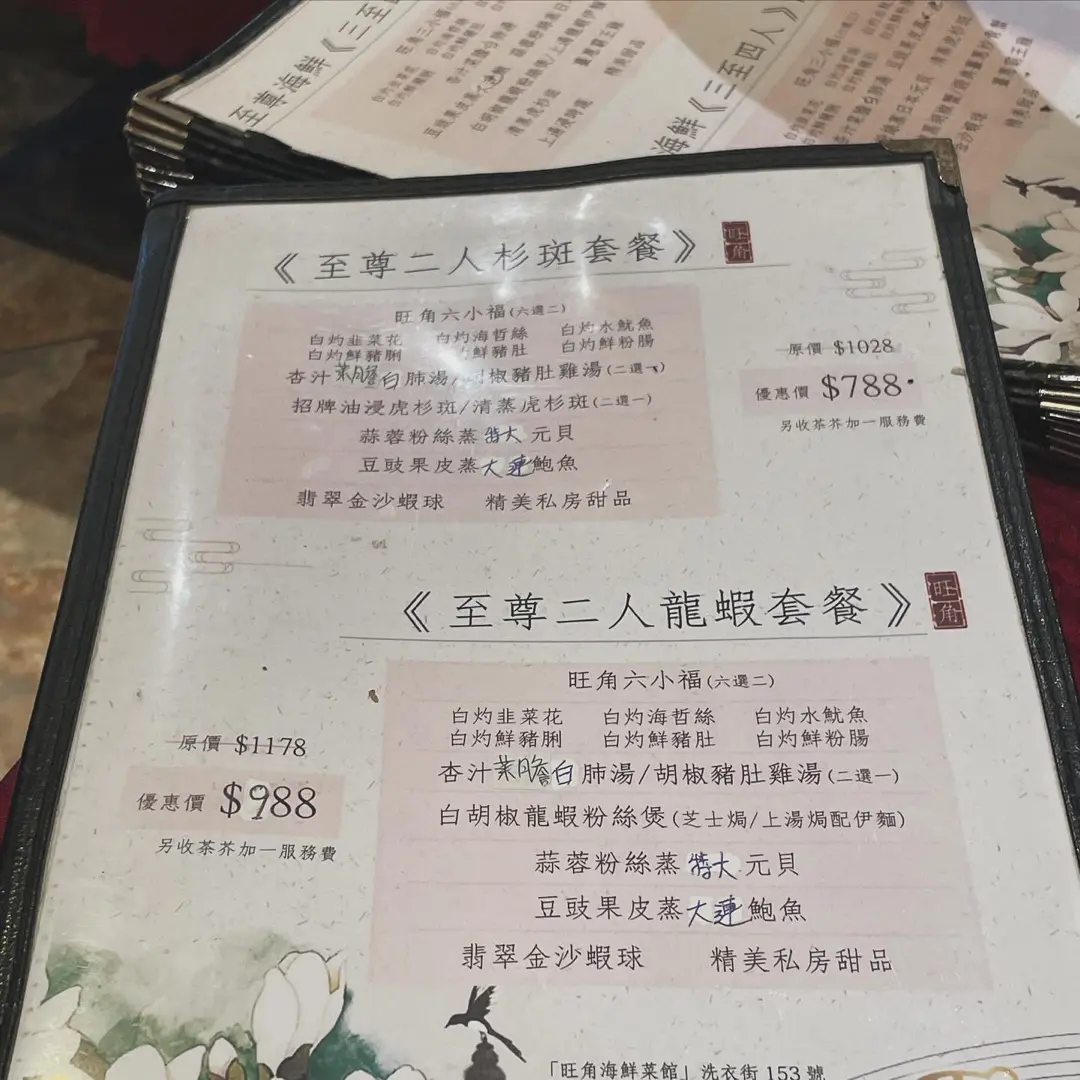 至尊海鮮《三至
海鮮《三至四人》
《至尊二人杉斑套餐》
旺角
旺角六小福(六選二)
白灼韭菜花 白灼海哲絲 白灼水魷魚
白灼鮮豬脷 灼鮮豬肚 白灼鮮粉腸
杏汁菜膽白肺湯/胡椒豬肚雞湯(二選一)
招牌油浸虎杉斑/清蒸虎杉斑(二選一)
蒜蓉粉絲蒸特大元貝
豆豉果皮蒸大連鮑魚
翡翠金沙蝦球 精美私房甜品
原價 $1028
優惠價 $788
另收茶芥加一服務費
《至尊二人龍蝦套餐》
旺角
旺角六小福(六選二)
白灼韭菜花 白灼海哲絲 白灼水魷魚
白灼鮮豬脷 白灼鮮豬肚 白灼鮮粉腸
杏汁菜膽白肺湯/胡椒豬肚雞湯(二選一)
白胡椒龍蝦粉絲煲(芝士焗/上湯焗配伊麵)
蒜蓉粉絲蒸特大元貝
豆豉果皮蒸大連鮑魚
翡翠金沙蝦球 精美私房甜品
原價 $1178
優惠價 $988
另收茶芥加一服務費
「旺角海鮮菜館」洗衣街 153 號